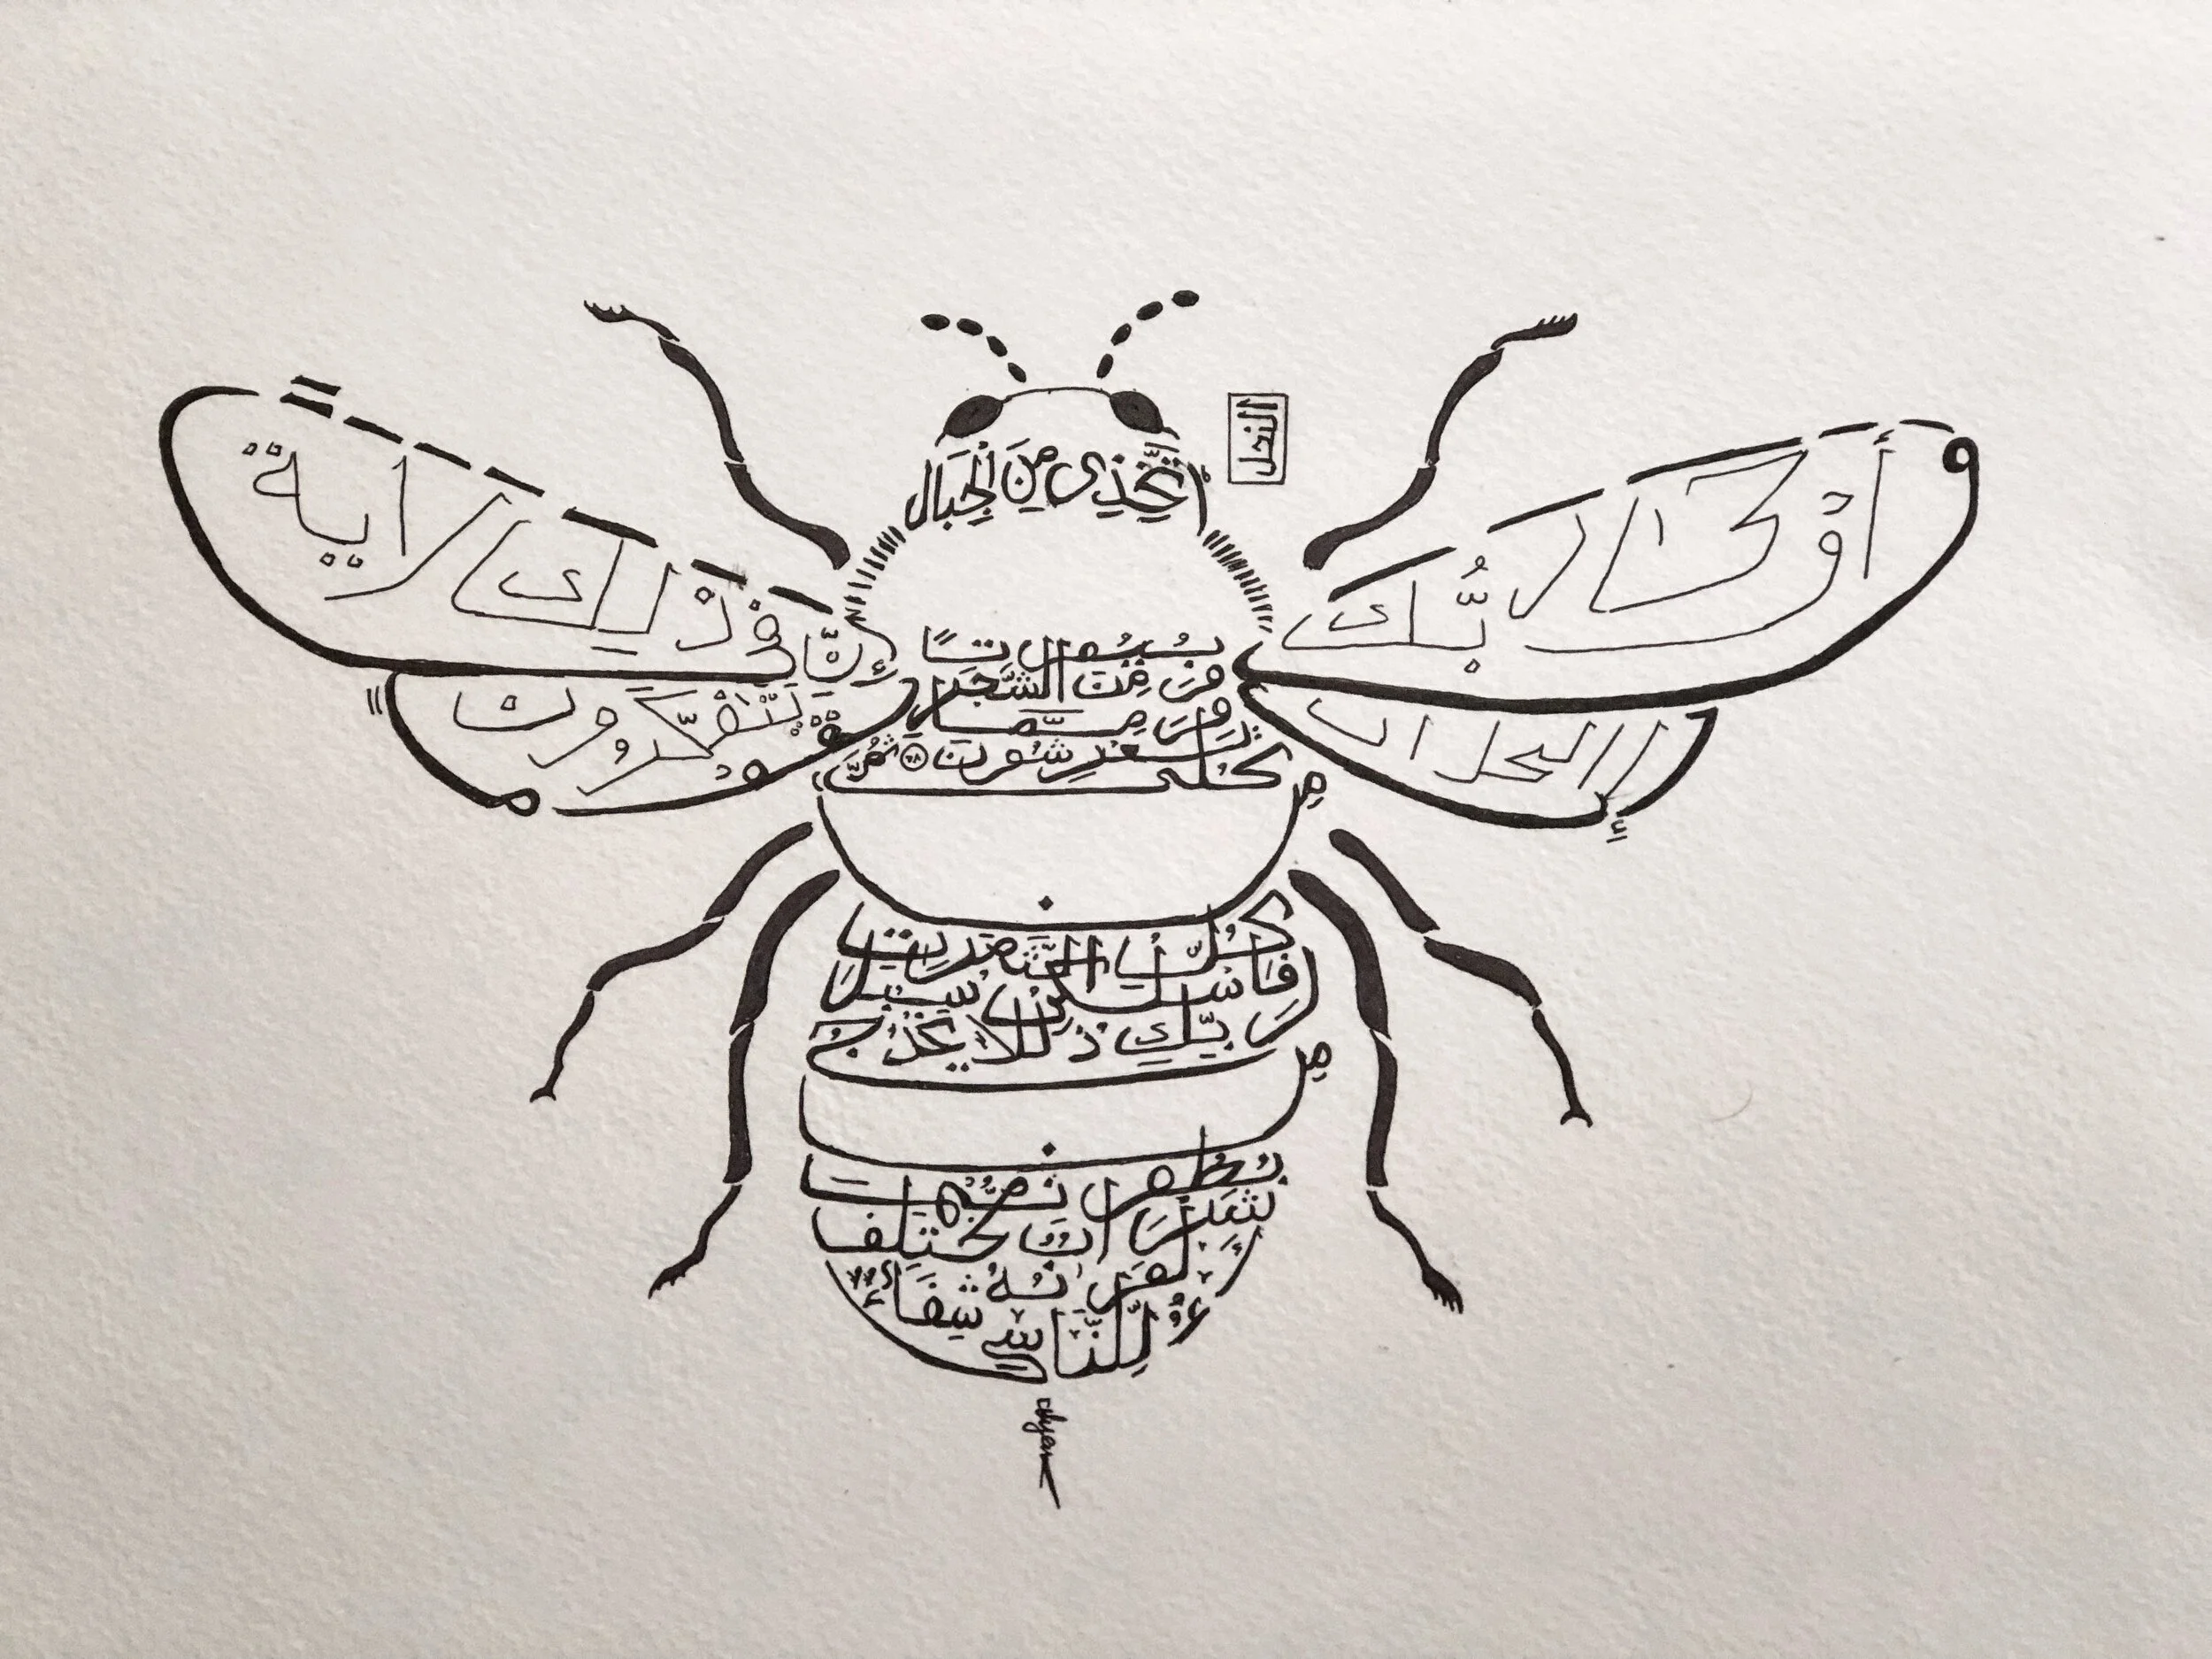 النحل
وأوحى ربك
إلى النحل أن
اتَّخِذِى مِنَ الْجِبَالِ
بُيُوتًا
وَمِنَ الشَّجَرِ
وَمِمَّا
يَعْرِشُونَ ٦٨ ثُمَّ
كُلِى
مِن
كُلِّ الثَّمَرَٰتِ
فَاسْلُكِى سُبُلَ
رَبِّكِ ذُلُلًا يَخْرُجُ
مِن
بُطُونِهَا
شَرَابٌ مُّخْتَلِفٌ
أَلْوَٰنُهُ
شِفَآءٌ
لِّلنَّاسِ
إِنَّ فِى ذَٰلِكَ لَآيَةً
لِّقَوْمٍ يَتَفَكَّرُونَ